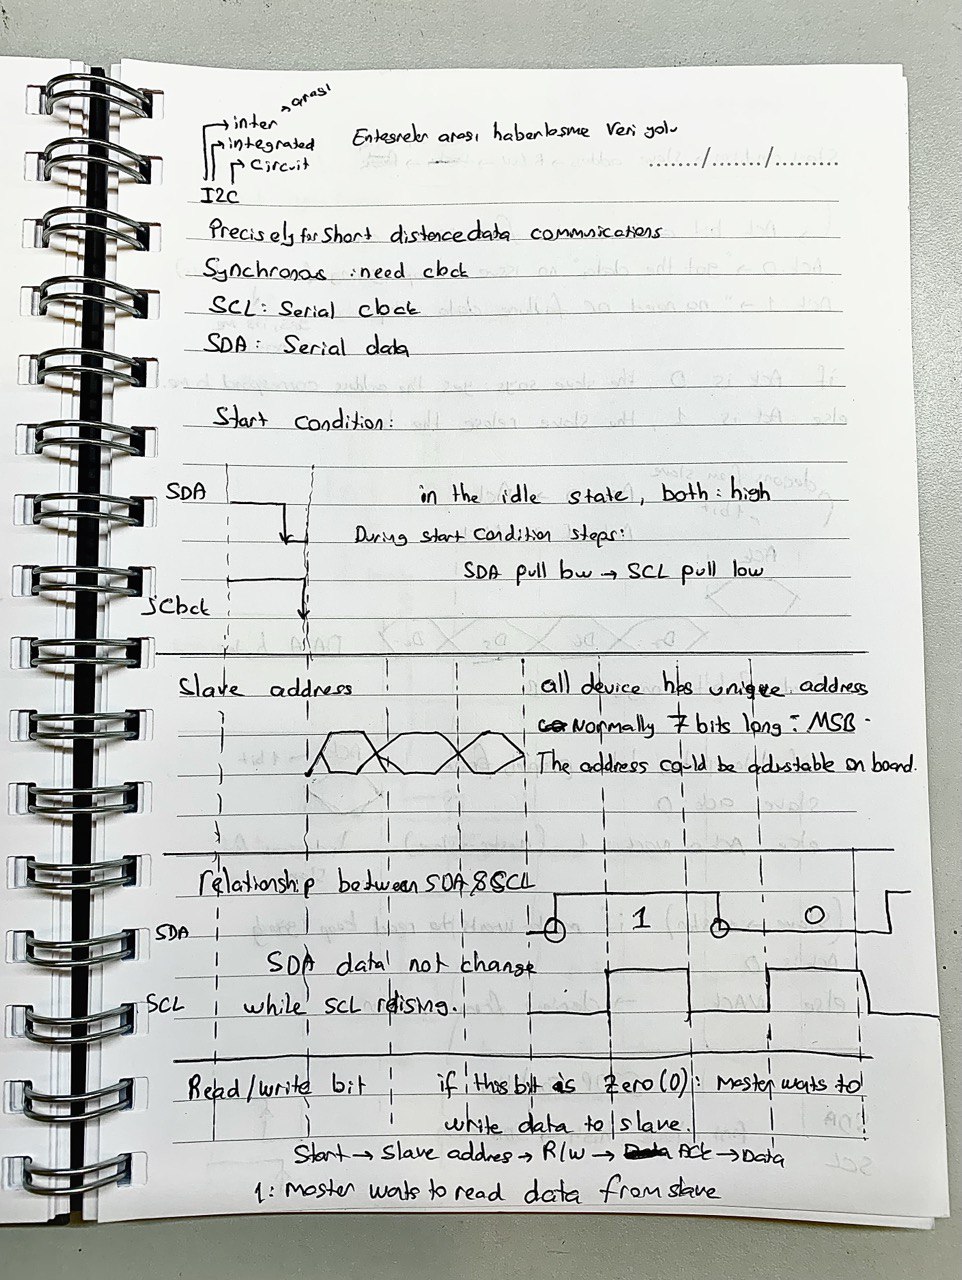 inter → arası
integrated
Circuit
I2C
Entegreler arası haberlesme Veri yolu
......./......./........
Precisely for Short distence data commnications
Synchronous : need clock
SCL: Serial clock
SDA: Serial data
Start condition:
SDA
in the idle state, both : high
During start condition steps:
SDA pull low → SCL pull low
SClock
Slave address
all device has unique address
Normally 7 bits long : MSB
The address could be adjustable on board.
relationship between SDA & SCL
SDA
1
0
SDA data not change
SCL
while SCL rdising.
Read/write bit
if this bit is Zero (0) : Master wants to
write data to slave.
Start → Slave addres → R/w → Ack → Data
1: Master wants to read data from slave